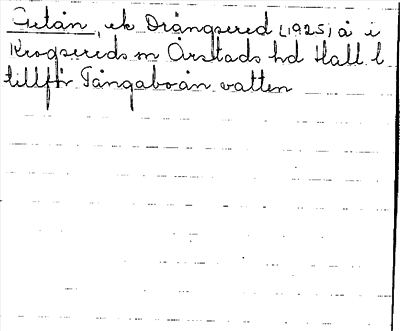 ek Drängsered (1925) å i
Krogsereds sn Årstads hd Hall l
tillför Tångaboån vatten